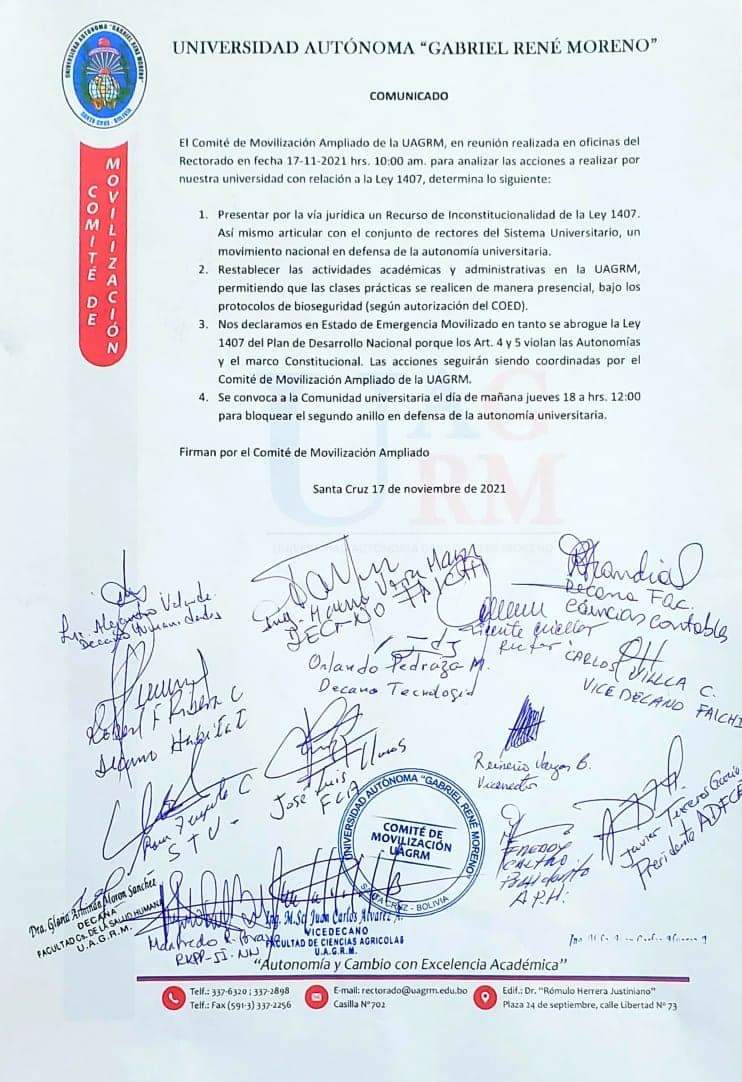 UNIVERSIDAD AUTÓNOMA "GABRIEL RENÉ MORENO"
UNIVERSIDAD AUTÓNOMA "GABRIEL RENÉ MORENO"
SANTA CRUZ - BOLIVIA
COMITÉ DE
MOVILIZACIÓN
COMUNICADO
El Comité de Movilización Ampliado de la UAGRM, en reunión realizada en oficinas del
Rectorado en fecha 17-11-2021 hrs. 10:00 am. para analizar las acciones a realizar por
nuestra universidad con relación a la Ley 1407, determina lo siguiente:
1. Presentar por la vía jurídica un Recurso de Inconstitucionalidad de la Ley 1407.
Así mismo articular con el conjunto de rectores del Sistema Universitario, un
movimiento nacional en defensa de la autonomía universitaria.
2. Restablecer las actividades académicas y administrativas en la UAGRM,
permitiendo que las clases prácticas se realicen de manera presencial, bajo los
protocolos de bioseguridad (según autorización del COED).
3. Nos declaramos en Estado de Emergencia Movilizado en tanto se abrogue la Ley
1407 del Plan de Desarrollo Nacional porque los Art. 4 y 5 violan las Autonomías
y el marco Constitucional. Las acciones seguirán siendo coordinadas por el
Comité de Movilización Ampliado de la UAGRM.
4. Se convoca a la Comunidad universitaria el día de mañana jueves 18 a hrs. 12:00
para bloquear el segundo anillo en defensa de la autonomía universitaria.
Firman por el Comité de Movilización Ampliado
UAGRM
Santa Cruz 17 de noviembre de 2021
Lic. Alejandro
Decano Humanidades
Ing. Mauro Vaca
DECANO FAICHI
Decana Fac.
Ciencias Contables
Vicente Cuellar
Rector
Orlando Pedraza M.
Decano Tecnología
CARLOS VILLCA C.
VICEDECANO FAICHI
Robert F Ribera C
Decano Habitat
José Luis
FCA
Reinerio Vargas B.
Vicerrector
S T U -
UNIVERSIDAD AUTÓNOMA "GABRIEL RENÉ MORENO"
COMITÉ DE
MOVILIZACIÓN
UAGRM
SANTA CRUZ - BOLIVIA
FREDDY
CASTRO
Presidente
A.P.H.
Javier Terceros
Presidente
Dra. Gloria Arminda Moron Sanchez
DECANA
FACULTAD CS. DE LA SALUD HUMANA
U.A.G.R.M.
Manfredo R.
Ing. M.Sc. Juan Carlos Alvarez A.
VICEDECANO
FACULTAD DE CIENCIAS AGRICOLAS
U.A.G.R.M.
"Autonomía y Cambio con Excelencia Académica"
Telf.: 337-6320 ; 337-2898
Telf.: Fax (591-3) 337-2256
E-mail: rectorado@uagrm.edu.bo
Casilla N°702
Edif.: Dr. "Rómulo Herrera Justiniano"
Plaza 24 de septiembre, calle Libertad N° 73